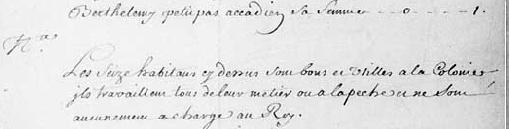 Berthelemy petit pas accadien sa femme - - o - - - 1.
Na.
Les seize habitans cy dessus sont bons et Utilles a la Colonie
ils travaillent tous de leur metier ou a la peche et ne sont
aucunement a charge au Roy.